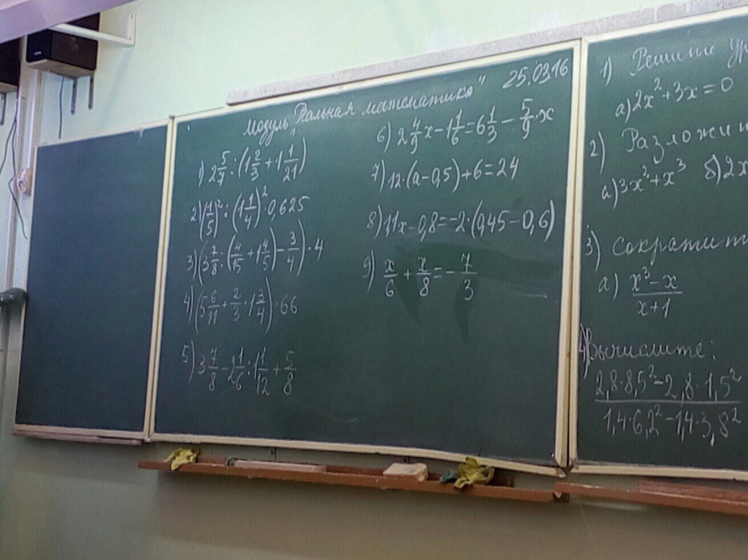 Модуль "Реальная математика" 25.0316
1) 2 5/7 : (1 2/3 + 1 1/21)
2) (1/5)² : (1 1/4)² · 0,625
3) (3 7/8 · (4/15 + 1 4/5) - 3/4) · 4
4) (5 6/11 + 2/3 · 1 3/4) · 66
5) 3 7/8 - 2 1/6 : 1 1/12 + 5/8
6) 2 4/9 x - 1 1/6 = 6 1/3 - 5/9 · x
7) 12 · (a - 0,5) + 6 = 24
8) 1,1x - 0,8 = -2 · (0,45 - 0,6)
9) x/6 + x/8 = - 7/3
1) Решите ур
а) 2x² + 3x = 0
2) Разложи
а) 3x² + x³ б) 2x
3) Сократит
а) (x³ - x)/(x + 1)
4) Вычислите:
(2,8 · 8,5² - 2,8 · 1,5²)/(1,4 · 6,2² - 1,4 · 3,8²)